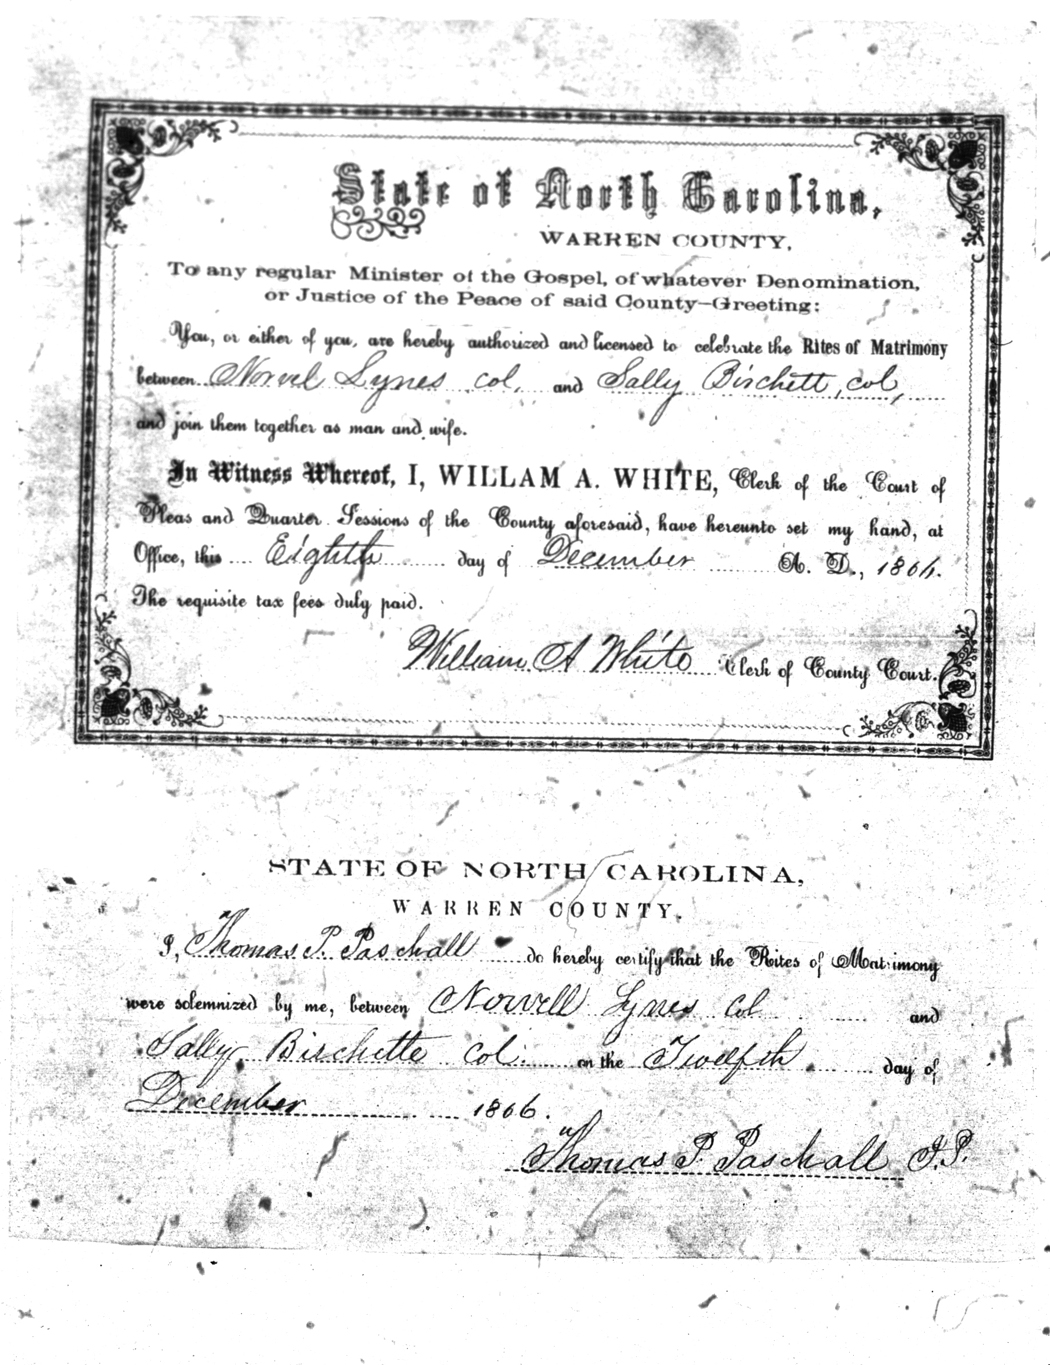 State of North Carolina,
WARREN COUNTY,
To any regular Minister of the Gospel, of whatever Denomination,
or Justice of the Peace of said County—Greeting:
You, or either of you, are hereby authorized and licensed to celebrate the Rites of Matrimony
between Norvel Lynes col. and Sally Birchett, col,
and join them together as man and wife.
In Witness Whereof, I, WILLAM A. WHITE, Clerk of the Court of
Pleas and Quarter Sessions of the County aforesaid, have hereunto set my hand, at
Office, this Eighth day of December A. D., 1866.
The requisite tax fees duly paid.
William A White Clerk of County Court.
STATE OF NORTH CAROLINA,
WARREN COUNTY.
I, Thomas P. Paschall do hereby certify that the Rites of Matrimony
were solemnized by me, between Norvell Lynes Col and
Sally Birchette Col. on the Twelfth day of
December 1866.
Thomas P. Paschall J.P.